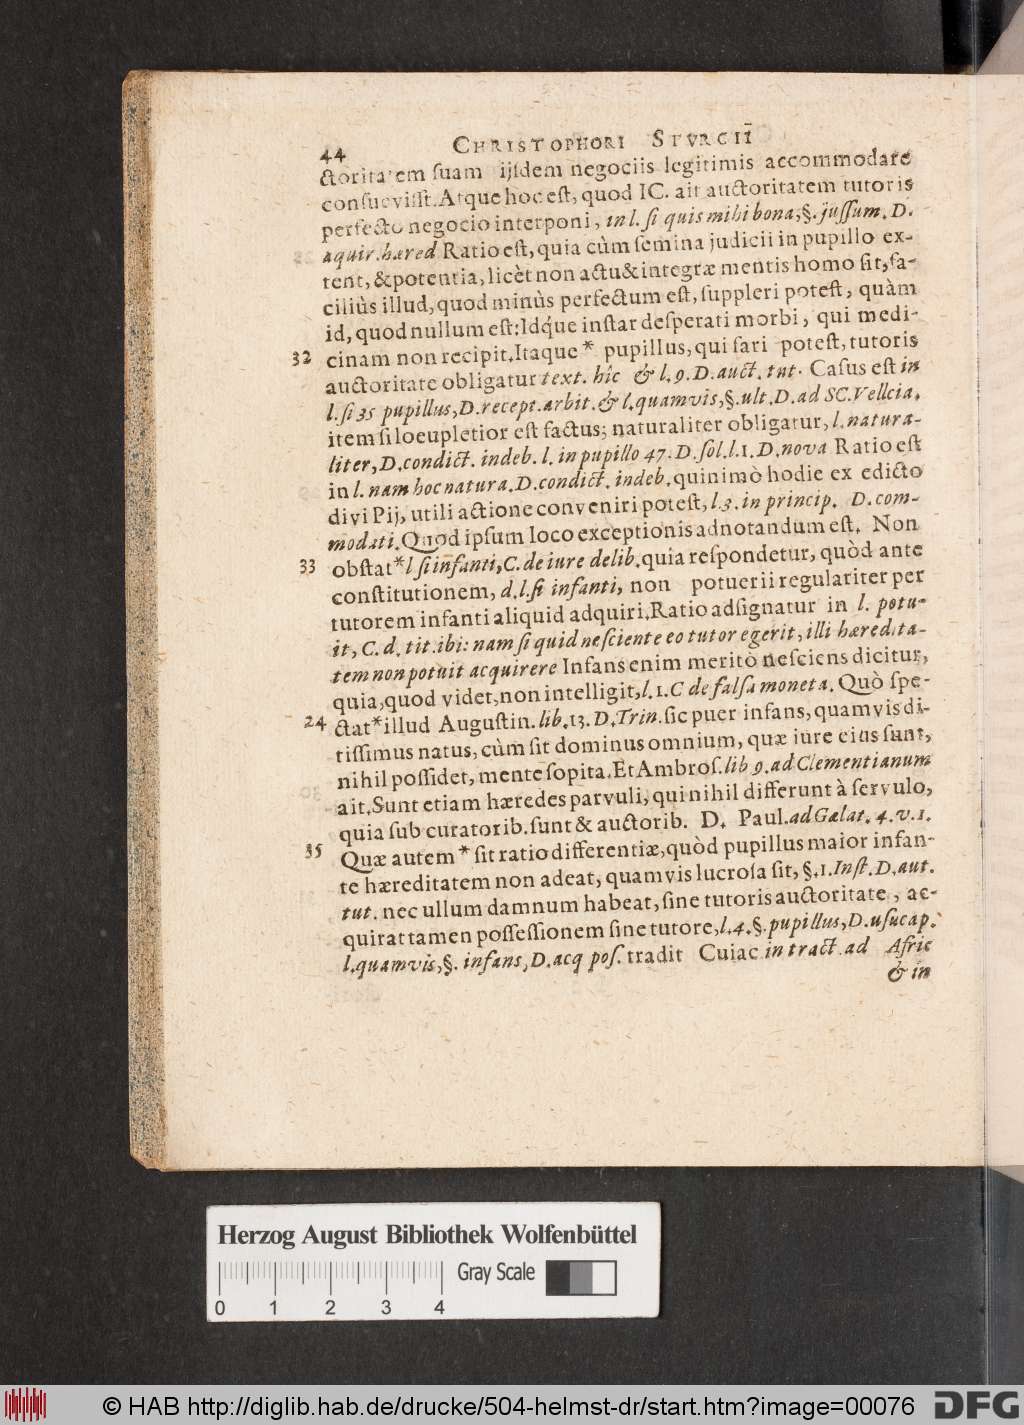 44 CHRISTOPHORI STVRCII
ctoritatem suam ijsdem negociis legitimis accommodare
consuevisst. Atque hoc est, quod IC. ait auctoritatem tutoris
perfecto negocio interponi, in l. si quis mihi bona, §. jussum. D.
aquir. hæred Ratio est, quia cùm semina judicii in pupillo ex-
tent, & potentia, licèt non actu & integræ mentis homo sit, fa-
ciliùs illud, quod minùs perfectum est, suppleri potest, quàm
id, quod nullum est: Idq́ue instar desperati morbi, qui medi-
32 cinam non recipit. Itaque * pupillus, qui fari potest, tutoris
auctoritate obligatur text. hîc & l. 9. D. auct. tut. Casus est in
l. si 35 pupillus, D. recept. arbit. & l. quamvis, §. ult. D. ad SC. Velleia.
item si loeupletior est factus; naturaliter obligatur, l. natura-
liter, D. condict. indeb. l. in pupillo 47. D. sol. l. 1. D. nova Ratio est
in l. nam hoc natura. D. condict. indeb. quinimò hodie ex edicto
divi Pij, utili actione conveniri potest, l. 3. in princip. D. com-
modati. Quod ipsum loco exceptionis adnotandum est. Non
33 obstat * l si infanti, C. de iure delib. quia respondetur, quòd ante
constitutionem, d. l. si infanti, non potuerii regulariter per
tutorem infanti aliquid adquiri. Ratio adsignatur in l. potu-
it, C. d. tit. ibi: nam si quid nesciente eo tutor egerit, illi hæredita-
tem non potuit acquirere Infans enim meritò nesciens dicitur,
quia, quod videt, non intelligit, l. 1. C de falsa moneta. Quò spe-
24 ctat * illud Augustin. lib. 13. D. Trin. sic puer infans, quamvis di-
tissimus natus, cùm sit dominus omnium, quæ iure eius sunt,
nihil possidet, mente sopita. Et Ambros. lib 9. ad Clementianum
ait. Sunt etiam hæredes parvuli, qui nihil differunt à servulo,
quia sub curatorib. sunt & auctorib. D. Paul. ad Galat. 4. v. 1.
35 Quæ autem * sit ratio differentiæ, quòd pupillus maior infan-
te hæreditatem non adeat, quamvis lucrosa sit, §. 1. Inst. D. aut.
tut. nec ullum damnum habeat, sine tutoris auctoritate, ac-
quirat tamen possessionem sine tutore, l. 4. §. pupillus, D. usucap.
l. quamvis, §. infans, D. acq pos. tradit Cuiac in tract. ad Afric
& in
Herzog August Bibliothek Wolfenbüttel
Gray Scale
0 1 2 3 4
© HAB http://diglib.hab.de/drucke/504-helmst-dr/start.htm?image=00076
DFG